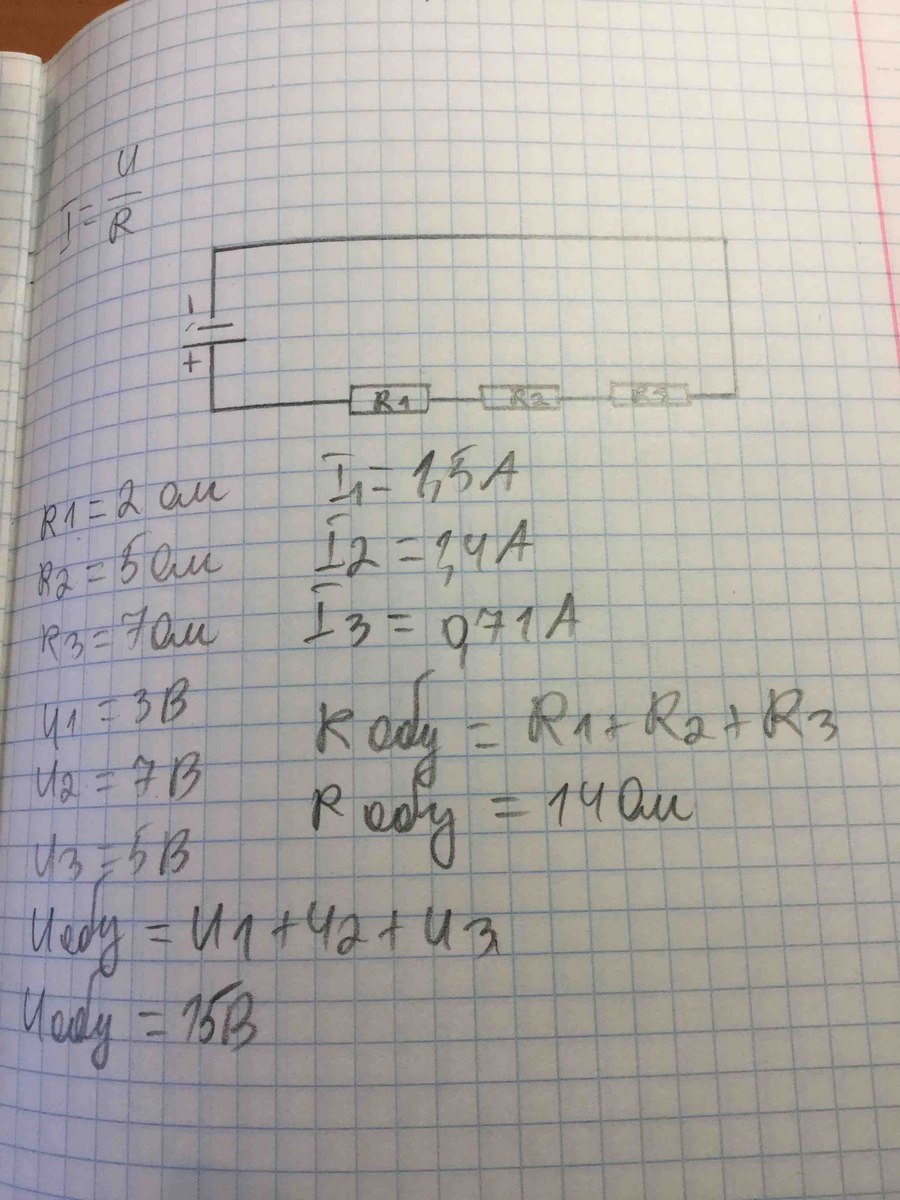 I = U/R
-
+
R1 R2 R3
R1 = 2 Ом
R2 = 5 Ом
R3 = 7 Ом
I1 = 1,5 А
I2 = 1,4 А
I3 = 0,71 А
U1 = 3 В
U2 = 7 В
U3 = 5 В
R общ = R1 + R2 + R3
R общ = 14 Ом
U общ = U1 + U2 + U3
U общ = 15 В